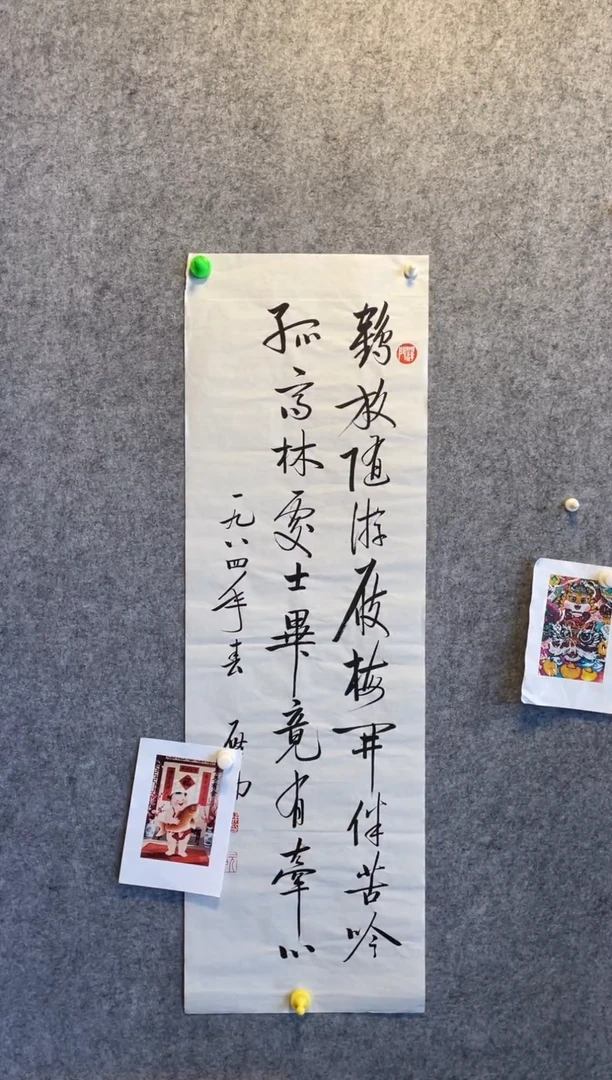 鹤放随游屐梅开伴苦吟
孤高林处士畢竟有牽心
一九八四年春
启功